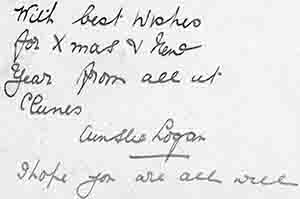 With best wishes
for Xmas & New
Year from all at
Clunes
Ainslie Logan
I hope you are all well